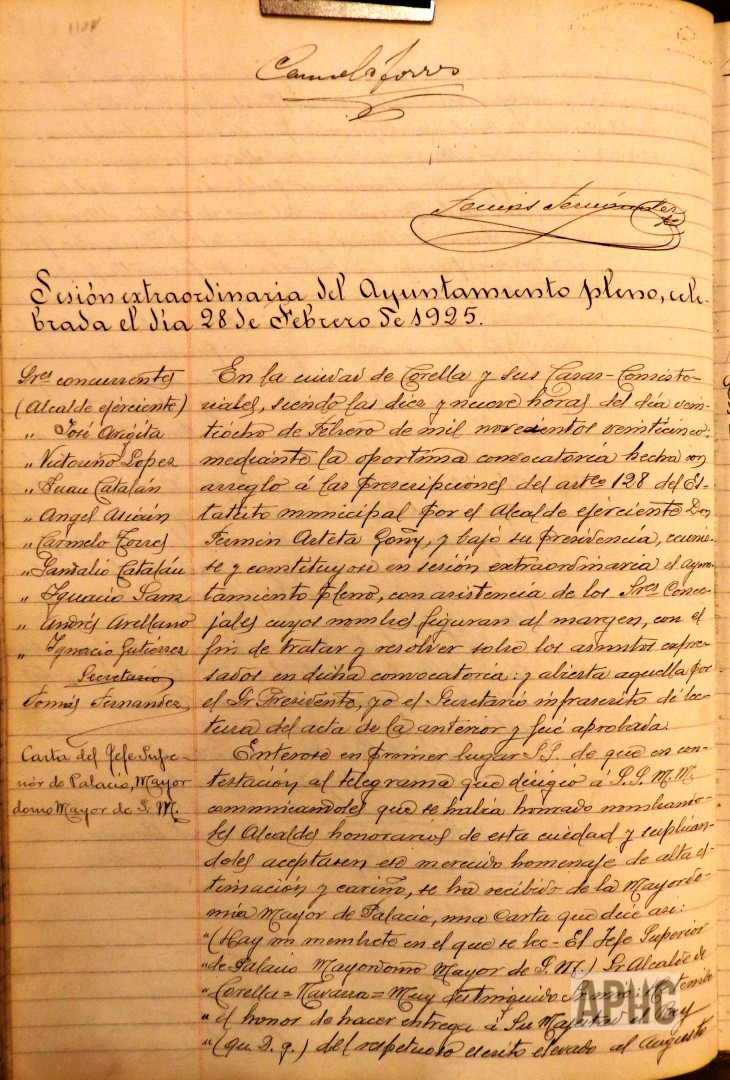 Carmelo Torres
Tomás Fernández
Sesión extraordinaria del Ayuntamiento pleno, cele-
brada el día 28 de Febrero de 1925.
Sres concurrentes
(Alcalde ejerciente)
„ José Arigita
„ Victorino Lopez
„ Juan Catalán
„ Angel Asiain
„ Carmelo Torres
„ Sandalio Catalán
„ Ignacio Sanz
„ Andrés Arellano
„ Ignacio Gutiérrez
Secretario
Tomás Fernandez
Carta del Jefe Supe-
rior de Palacio, Mayor
domo Mayor de S. M.
En la ciudad de Corella y sus Casas-Consisto-
riales, siendo las diez y nueve horas del día vein-
tiocho de Febrero de mil novecientos veinticinco:
mediante la oportuna convocatoria hecha con
arreglo á las prescripciones del artco 128 del Es-
tatuto municipal por el Alcalde ejerciente Don
Fermin Arteta Goñy, y bajo su presidencia, reunió-
se y constituyose en sesión extraordinaria el ayun-
tamiento pleno, con asistencia de los Sres Conce-
jales cuyos nombres figuran al margen, con el
fin de tratar y resolver sobre los asuntos expre-
sados en dicha convocatoria: y abierta aquella por
el Sr Presidente, yo el Secretario infrascrito dí lec-
tura del acta de la anterior y fué aprobada.
Enterose en primer lugar S.S. de que en con-
testación al telegrama que dirigió á S.S. M.M.
comunicandoles que se había honrado nombrando-
les Alcaldes honorarios de esta ciudad y suplican-
doles aceptasen ese merecido homenaje de alta es-
timación y cariño, se ha recibido de la Mayordo-
mía Mayor de Palacio, una Carta que dice asi:
"(Hay un membrete en el que se lee - El Jefe Superior
"de Palacio Mayordomo Mayor de S. M.) Sr Alcalde de
"Corella = Navarra = Muy distinguido tenido
"el honor de hacer entrega á Su Majestad el Rey
"(qu. D. g.) del respetuoso escrito elevado al Augusto
APHC